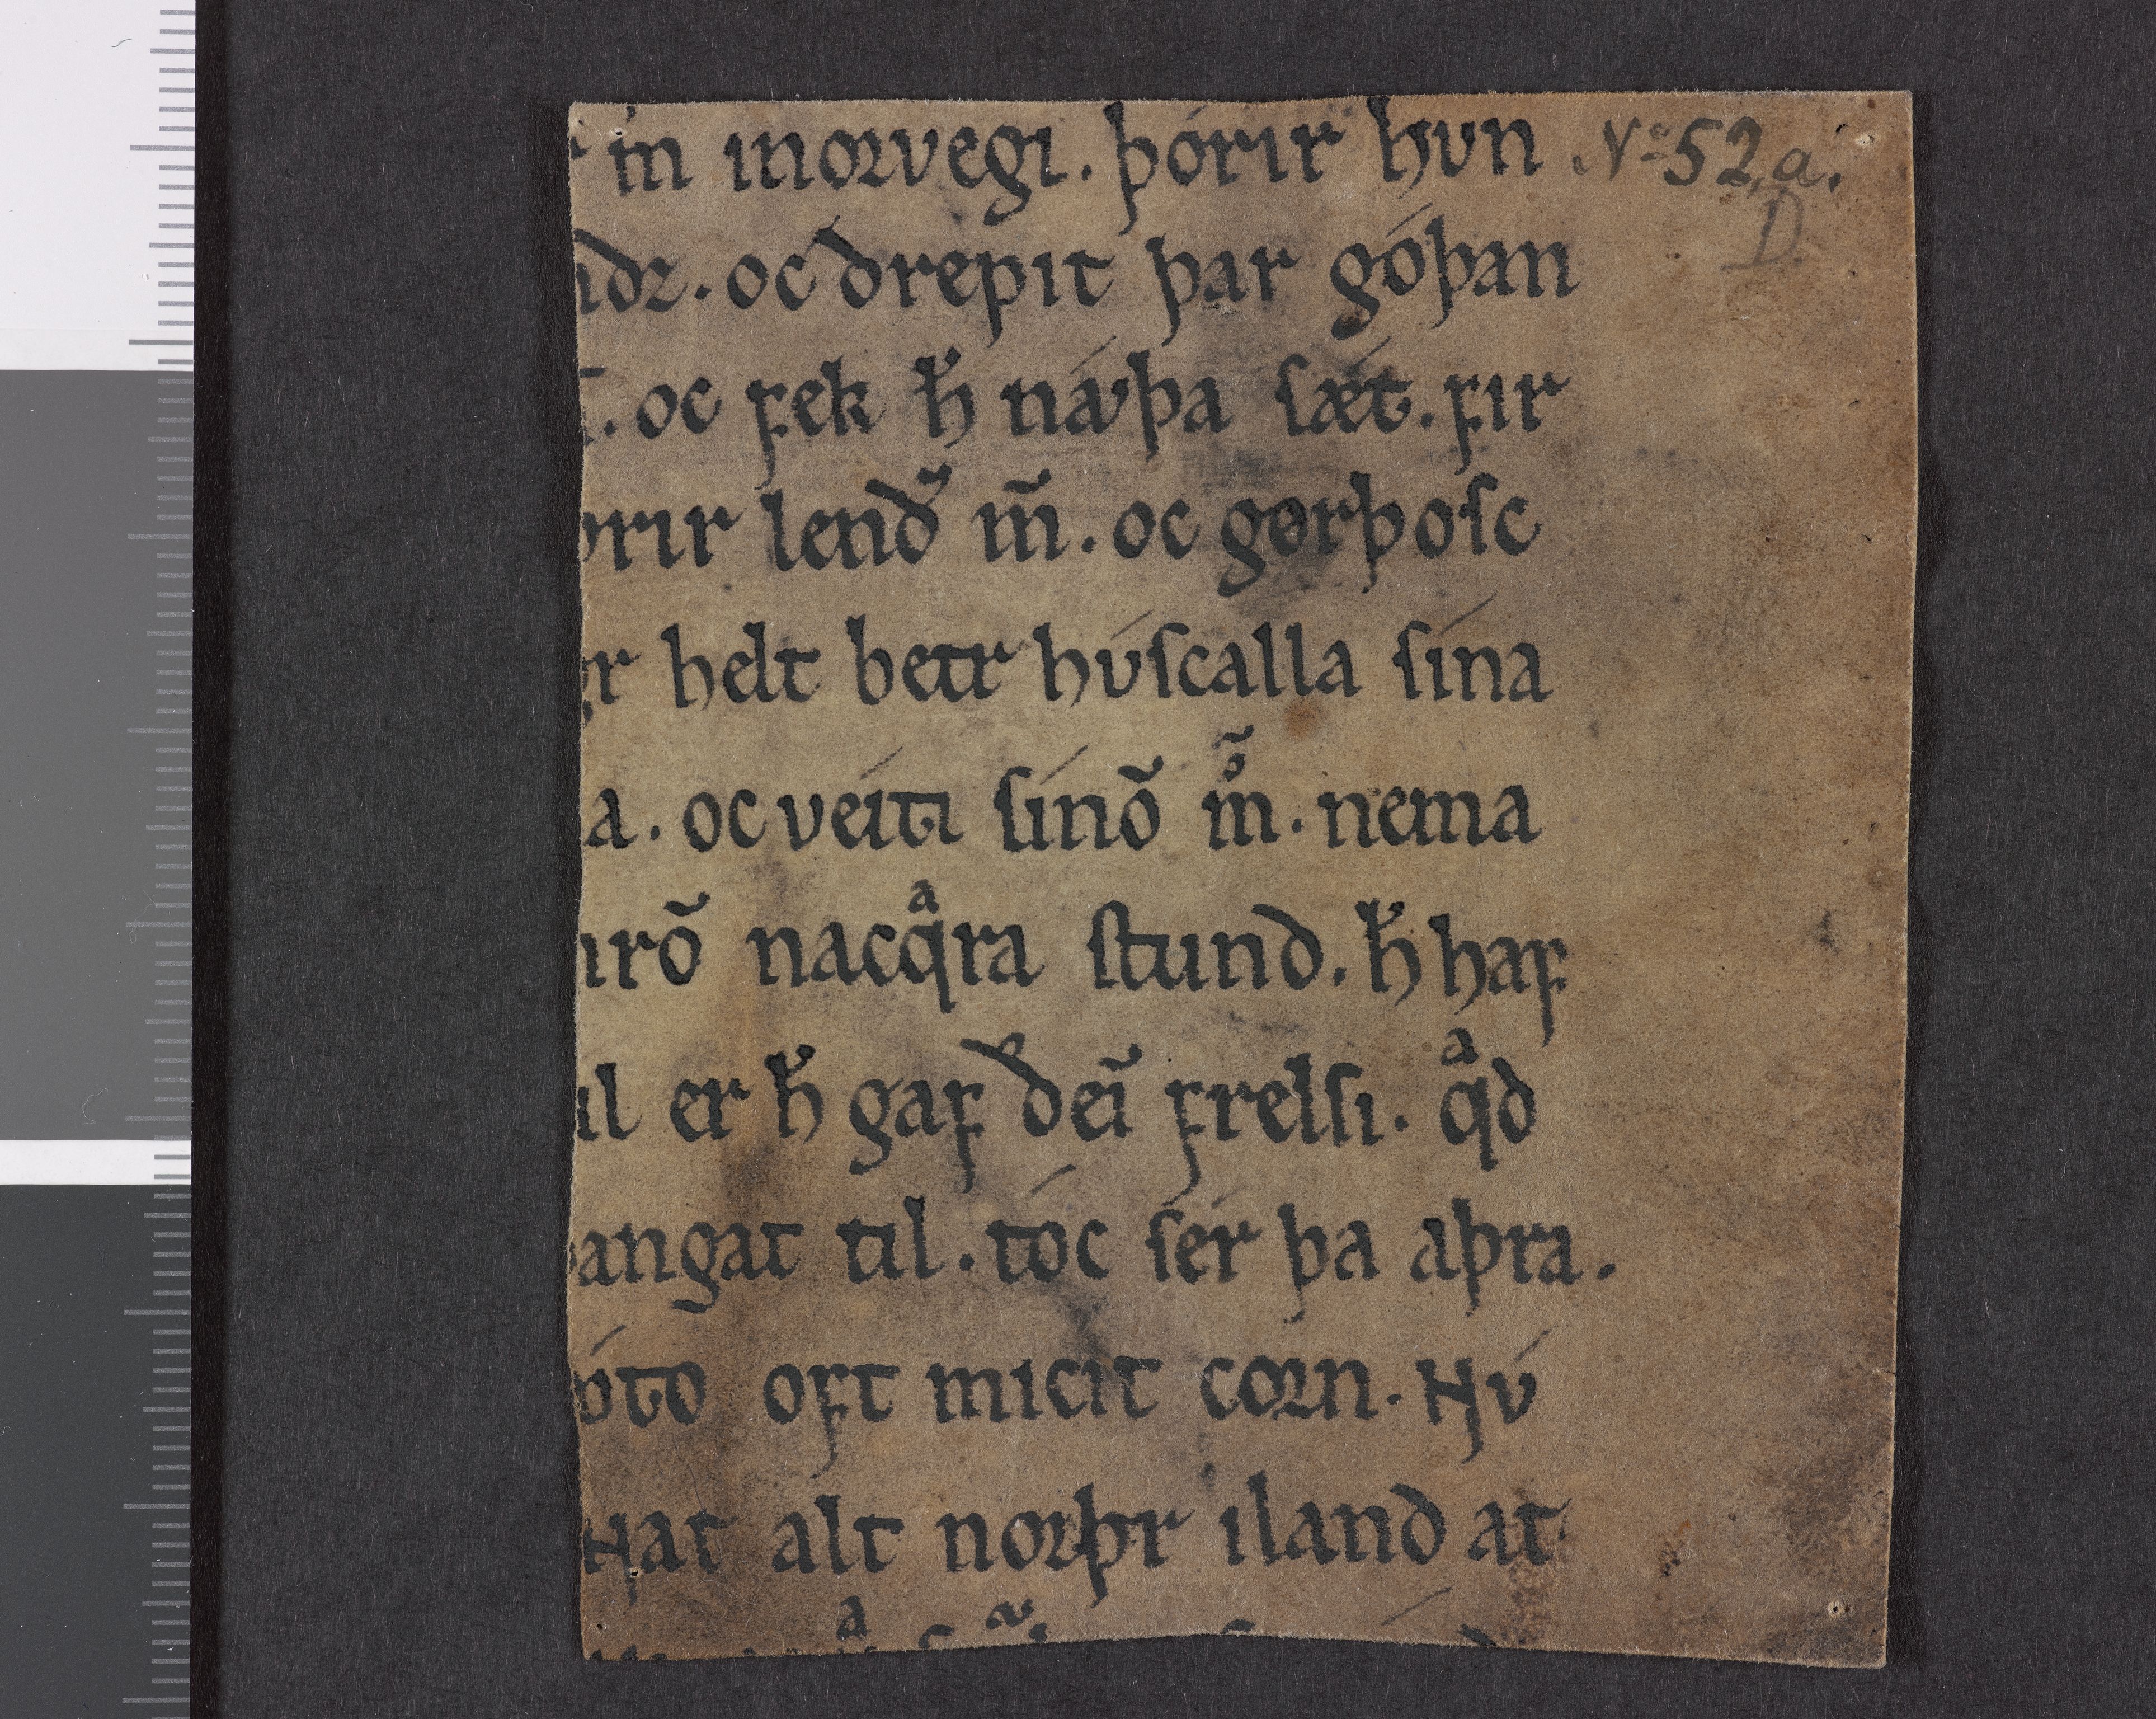 m̄ inoꝛvegi. þórir hvn Nº 52,a.
dꝛ. oc drepit þar góþan D.
. oc ꝼek h̄ náꝩþa ſǽt. ꝼır
rir lend̄ m̄. oc gørþoſc
r helt betr húſcalla ſína
a. oc veíti ſínō m̊̄. nema
rō nacqͣra ſtund. h̄ haꝼ
il er h̄ gaꝼ ðeī ꝼrelſi. qͣd
angat til. tóc ſér þa aþra.
óto oꝼt micit coꝛn. Hv́
Hat alt noꝛþr iland at